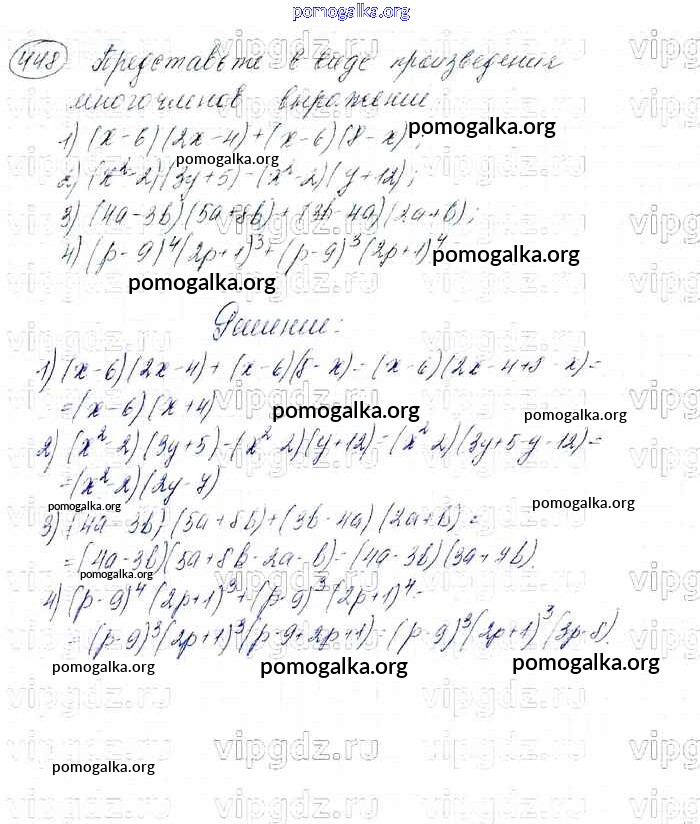 pomogalka.org
448 Представьте в виде произведения
многочленов выражение
1) (x-6)(2x-4)+(x-6)(8-x);
pomogalka.org
pomogalka.org
2) (x²-2)(3y+5)-(x²-2)(y+12);
3) (4a-3b)(5a+8b)+(3b-4a)(2a+b);
4) (p-9)⁴(2p+1)³+(p-9)³(2p+1)⁴
pomogalka.org
pomogalka.org
Решение:
1) (x-6)(2x-4)+(x-6)(8-x)=(x-6)(2x-4+8-x)=
=(x-6)(x+4)
pomogalka.org
pomogalka.org
2) (x²-2)(3y+5)-(x²-2)(y+12)=(x²-2)(3y+5-y-12)=
=(x²-2)(2y-7)
pomogalka.org
pomogalka.org
3) (4a-3b)(5a+8b)+(3b-4a)(2a+b)=
=(4a-3b)(5a+8b-2a-b)=(4a-3b)(3a+7b).
pomogalka.org
4) (p-9)⁴(2p+1)³+(p-9)³(2p+1)⁴=
=(p-9)³(2p+1)³(p-9+2p+1)=(p-9)³(2p+1)³(3p-8).
pomogalka.org
pomogalka.org
pomogalka.org
vipgdz.ru
pomogalka.org